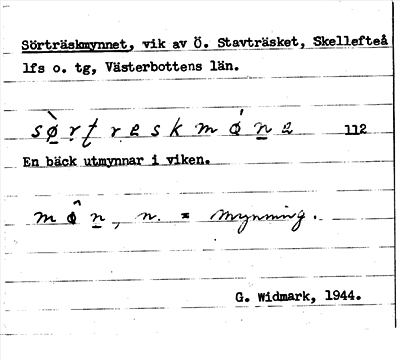 Sörträskmynnet, vik av Ö. Stavträsket, Skellefteå
lfs o. tg, Västerbottens län.
sø̀rtreskmǿnə 112
En bäck utmynnar i viken.
mø̂n, n. = mynning.
G. Widmark, 1944.